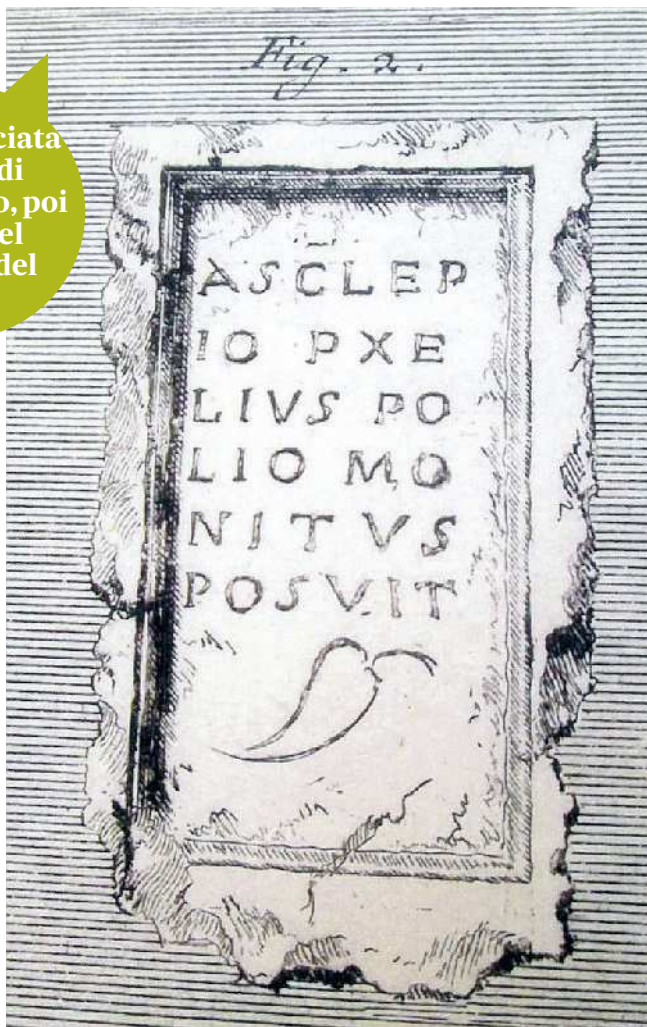 Fig. 2.
ciata
di
o, poi
el
del
ASCLEP
IO PXE
LIVS PO
LIO MO
NITVS
POSVIT